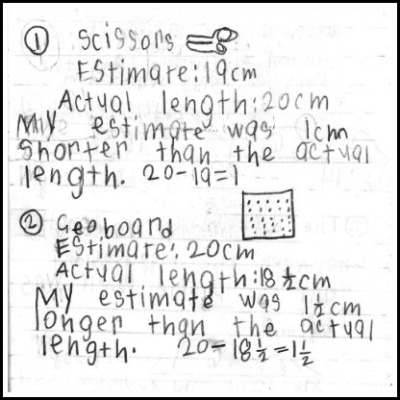 ① Scissors
Estimate: 19cm
Actual length: 20cm
My estimate was 1cm
shorter than the actual
length. 20-19=1
② Geoboard
Estimate: 20cm
Actual length: 18 1/2 cm
My estimate was 1 1/2 cm
longer than the actual
length. 20-18 1/2=1 1/2